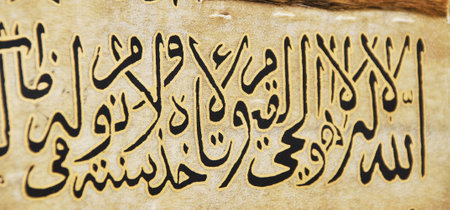 الله لا إله إلا هو الحي القيوم لا تأخذه سنة ولا نوم له ما في